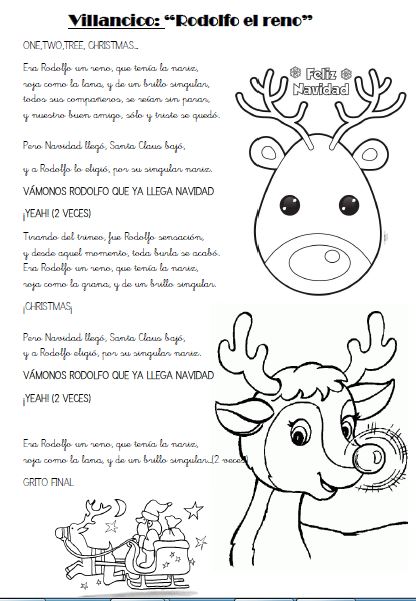 Villancico: “Rodolfo el reno”
ONE,TWO,TREE, CHRISTMAS...
Era Rodolfo un reno, que tenía la nariz,
roja como la lana, y de un brillo singular,
todos sus compañeros, se reían sin parar,
y nuestro buen amigo, sólo y triste se quedó.
Feliz
Navidad
Pero Navidad llegó, Santa Claus bajó,
y a Rodolfo lo eligió, por su singular nariz.
VÁMONOS RODOLFO QUE YA LLEGA NAVIDAD
¡YEAH! (2 VECES)
Tirando del trineo, fue Rodolfo sensación,
y desde aquel momento, toda burla se acabó.
Era Rodolfo un reno, que tenía la nariz,
roja como la grana, y de un brillo singular.
¡CHRISTMAS¡
Pero Navidad llegó, Santa Claus bajó,
y a Rodolfo eligió, por su singular nariz.
VÁMONOS RODOLFO QUE YA LLEGA NAVIDAD
¡YEAH! (2 VECES)
Era Rodolfo un reno, que tenía la nariz,
roja como la lana, y de un brillo singular...(2 veces)
GRITO FINAL